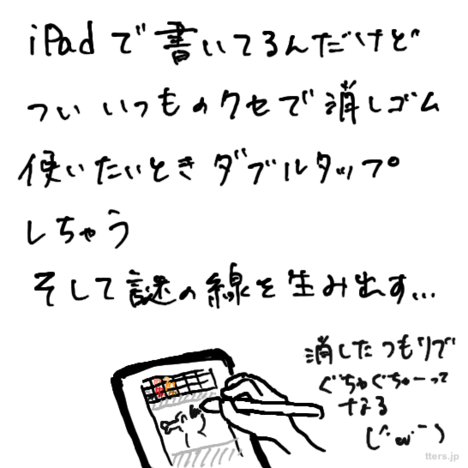 iPadで書いてるんだけど
ついいつものクセで消しゴム
使いたいときダブルタップ
しちゃう
そして謎の線を生み出す...
消したつもりで
ぐちゃぐちゃーって
なる
tters.jp